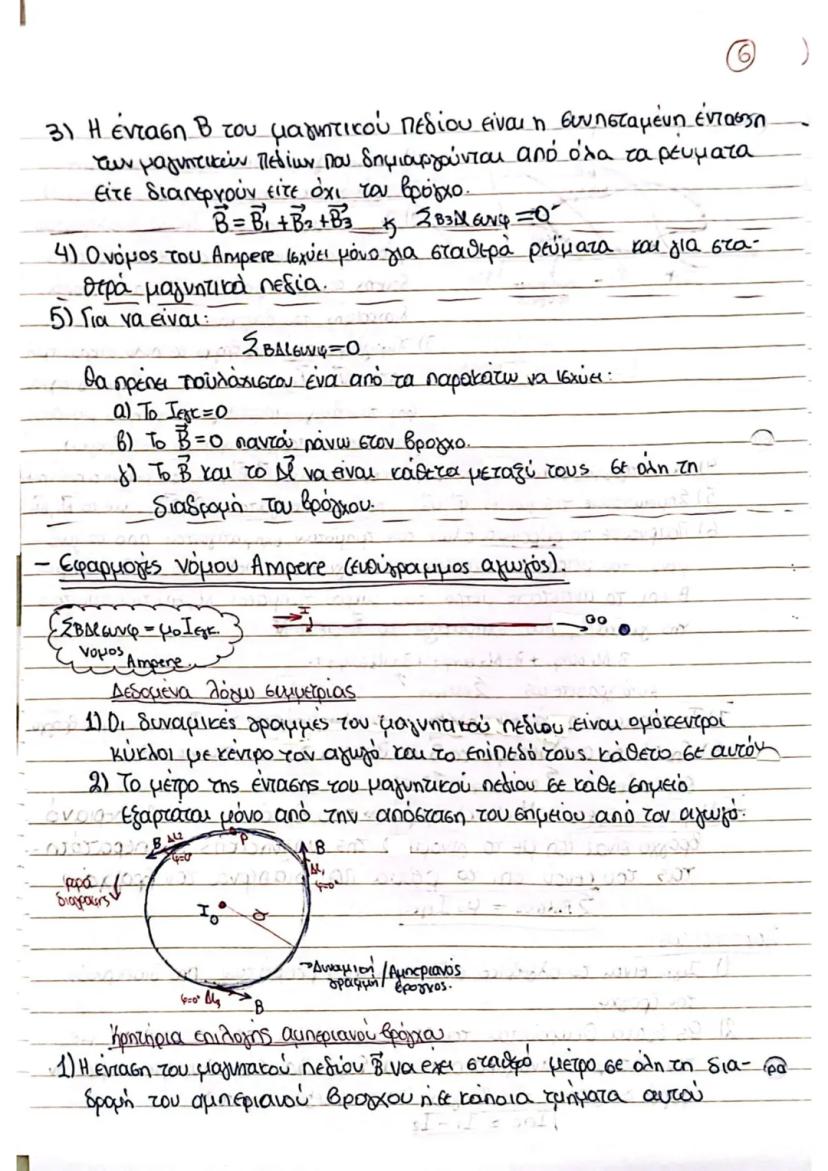 6
3) Η ένταση Β του μαγνητικού πεδίου είναι η συνισταμένη ένταση
των μαγνητικών πεδίων που δημιουργούνται από όλα τα ρεύματα
είτε διαπερνούν είτε όχι τον βρόγχο.
B⃗ = B⃗1 + B⃗2 + B⃗3 & ΣB3Δlσυνφ = 0
4) Ο νόμος του Ampere ισχύει μόνο για σταθερά ρεύματα και για στα-
θερά μαγνητικά πεδία.
5) Για να είναι:
ΣΒΔlσυνφ=0
θα πρέπει τουλάχιστον ένα από τα παρακάτω να ισχύει:
α) Το Ιεγκ=0
β) Το B⃗=0 παντού πάνω στον βρογχο.
γ) Το B⃗ και το Δl⃗ να είναι κάθετα μεταξύ τους σε όλη τη
διαδρομή του βρόγχου.
- Εφαρμογές νόμου Ampere (ευθύγραμμος αγωγός).
ΣΒΔlσυνφ = μο Ιεγκ.
νομος
Ampere
I
∞
Δεδομένα λόγω συμμετρίας
1) Οι δυναμικές γραμμές του μαγνητικού πεδίου είναι ομόκεντροι
κύκλοι με κέντρο τον αγωγό και το επίπεδό τους κάθετο σε αυτόν
2) Το μέτρο της έντασης του μαγνητικού πεδίου σε κάθε σημείο
εξαρτάται μόνο από την απόσταση του σημείου από τον αγωγό.
B Δl2 P B
φ=0° Δl1
φορά φ=0°
διαγραφής
I
Δυναμική / Αμπεριανός
γραμμή βρογχος.
φ=0° Δl3 B
Κρητήρια επιλογής αμπεριανού βρόγχου
1) Η ένταση του μαγνητικού πεδίου B⃗ να έχει σταθερό μέτρο σε όλη τη δια-
δρομή του αμπεριανού βρογχου ή σε κάποια τμήματα αυτού